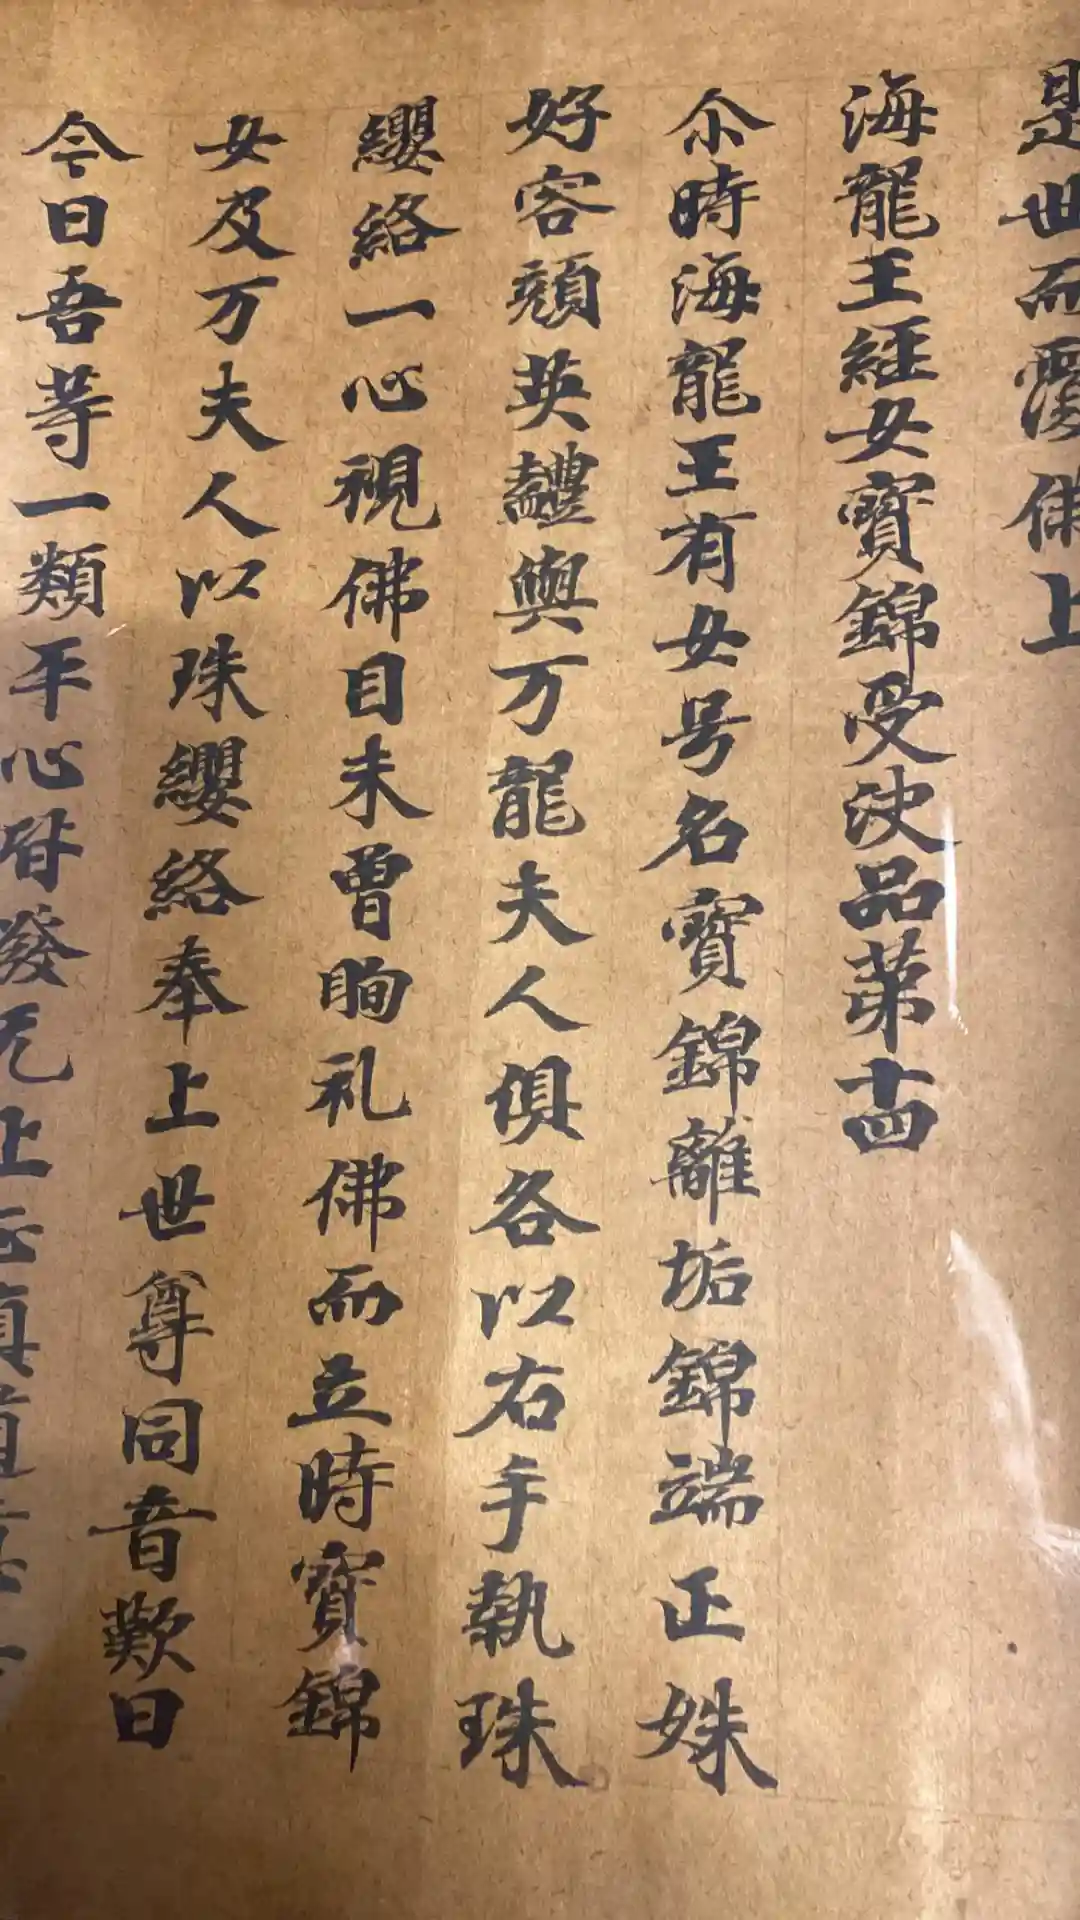 是世而澷佛上
海龍王經女寳錦受決品苐十四
尒時海龍王有女号名寳錦離垢錦端正姝
好容顏英豔與万龍夫人俱各以右手執珠
纓絡一心視佛目未曾眴礼佛而立時寳錦
女及万夫人以珠纓絡奉上世尊同音歎曰
今日吾等一類平心皆發无上正真道意